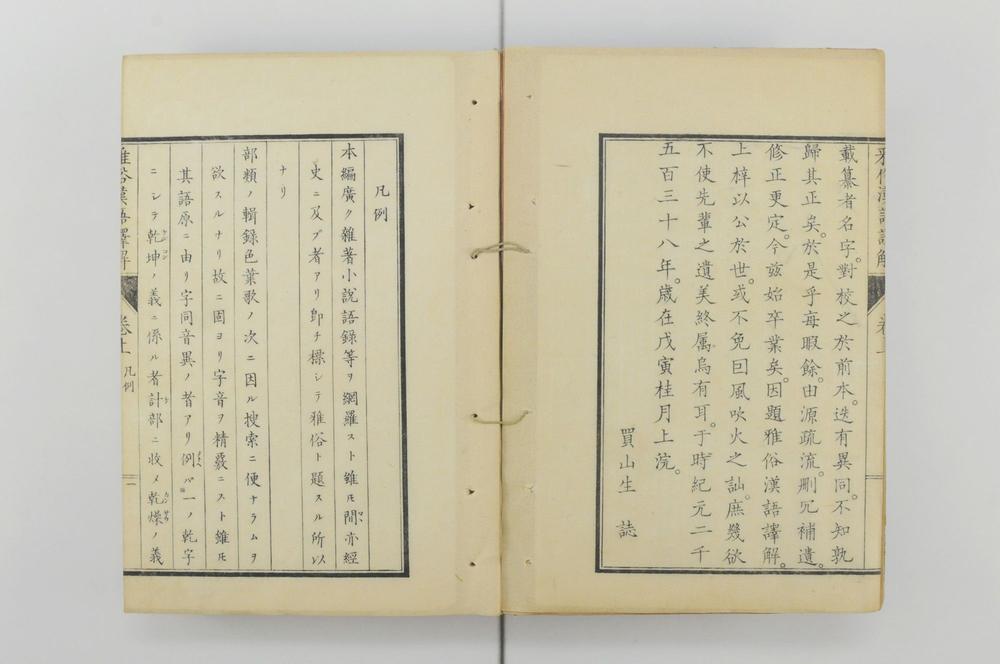 載纂者名字。對校之於前本。迭有異同。不知孰
歸其正矣。於是乎每暇餘。由源疏流。刪冗補遺。
修正更定。今玆始卒業矣。因題雅俗漢語譯解。
上梓以公於世。或不免囙風吹火之訕。庶幾欲
不使先輩之遺美終属烏有耳。于時紀元二千
五百三十八年。歲在戊寅桂月上浣。
買山生　誌
凡例
本編廣ク雜著小說語錄等ヲ網羅スト雖𪜈間亦經
史ニ及ブ者アリ卽チ標シテ雅俗ト題スル所以
ナリ
部類ノ輯錄色葉歌ノ次ニ因ル搜索ニ便ナラムヲ
欲スルナリ故ニ固ヨリ字音ヲ精覈ニスト雖𪜈
其語原ニ由リ字同音異ノ者アリ例バ一ノ乾字
ニシテ乾坤ノ義ニ係ル者計部ニ收メ乾燥ノ義
雅俗漢語譯解　卷十一　凡例　一